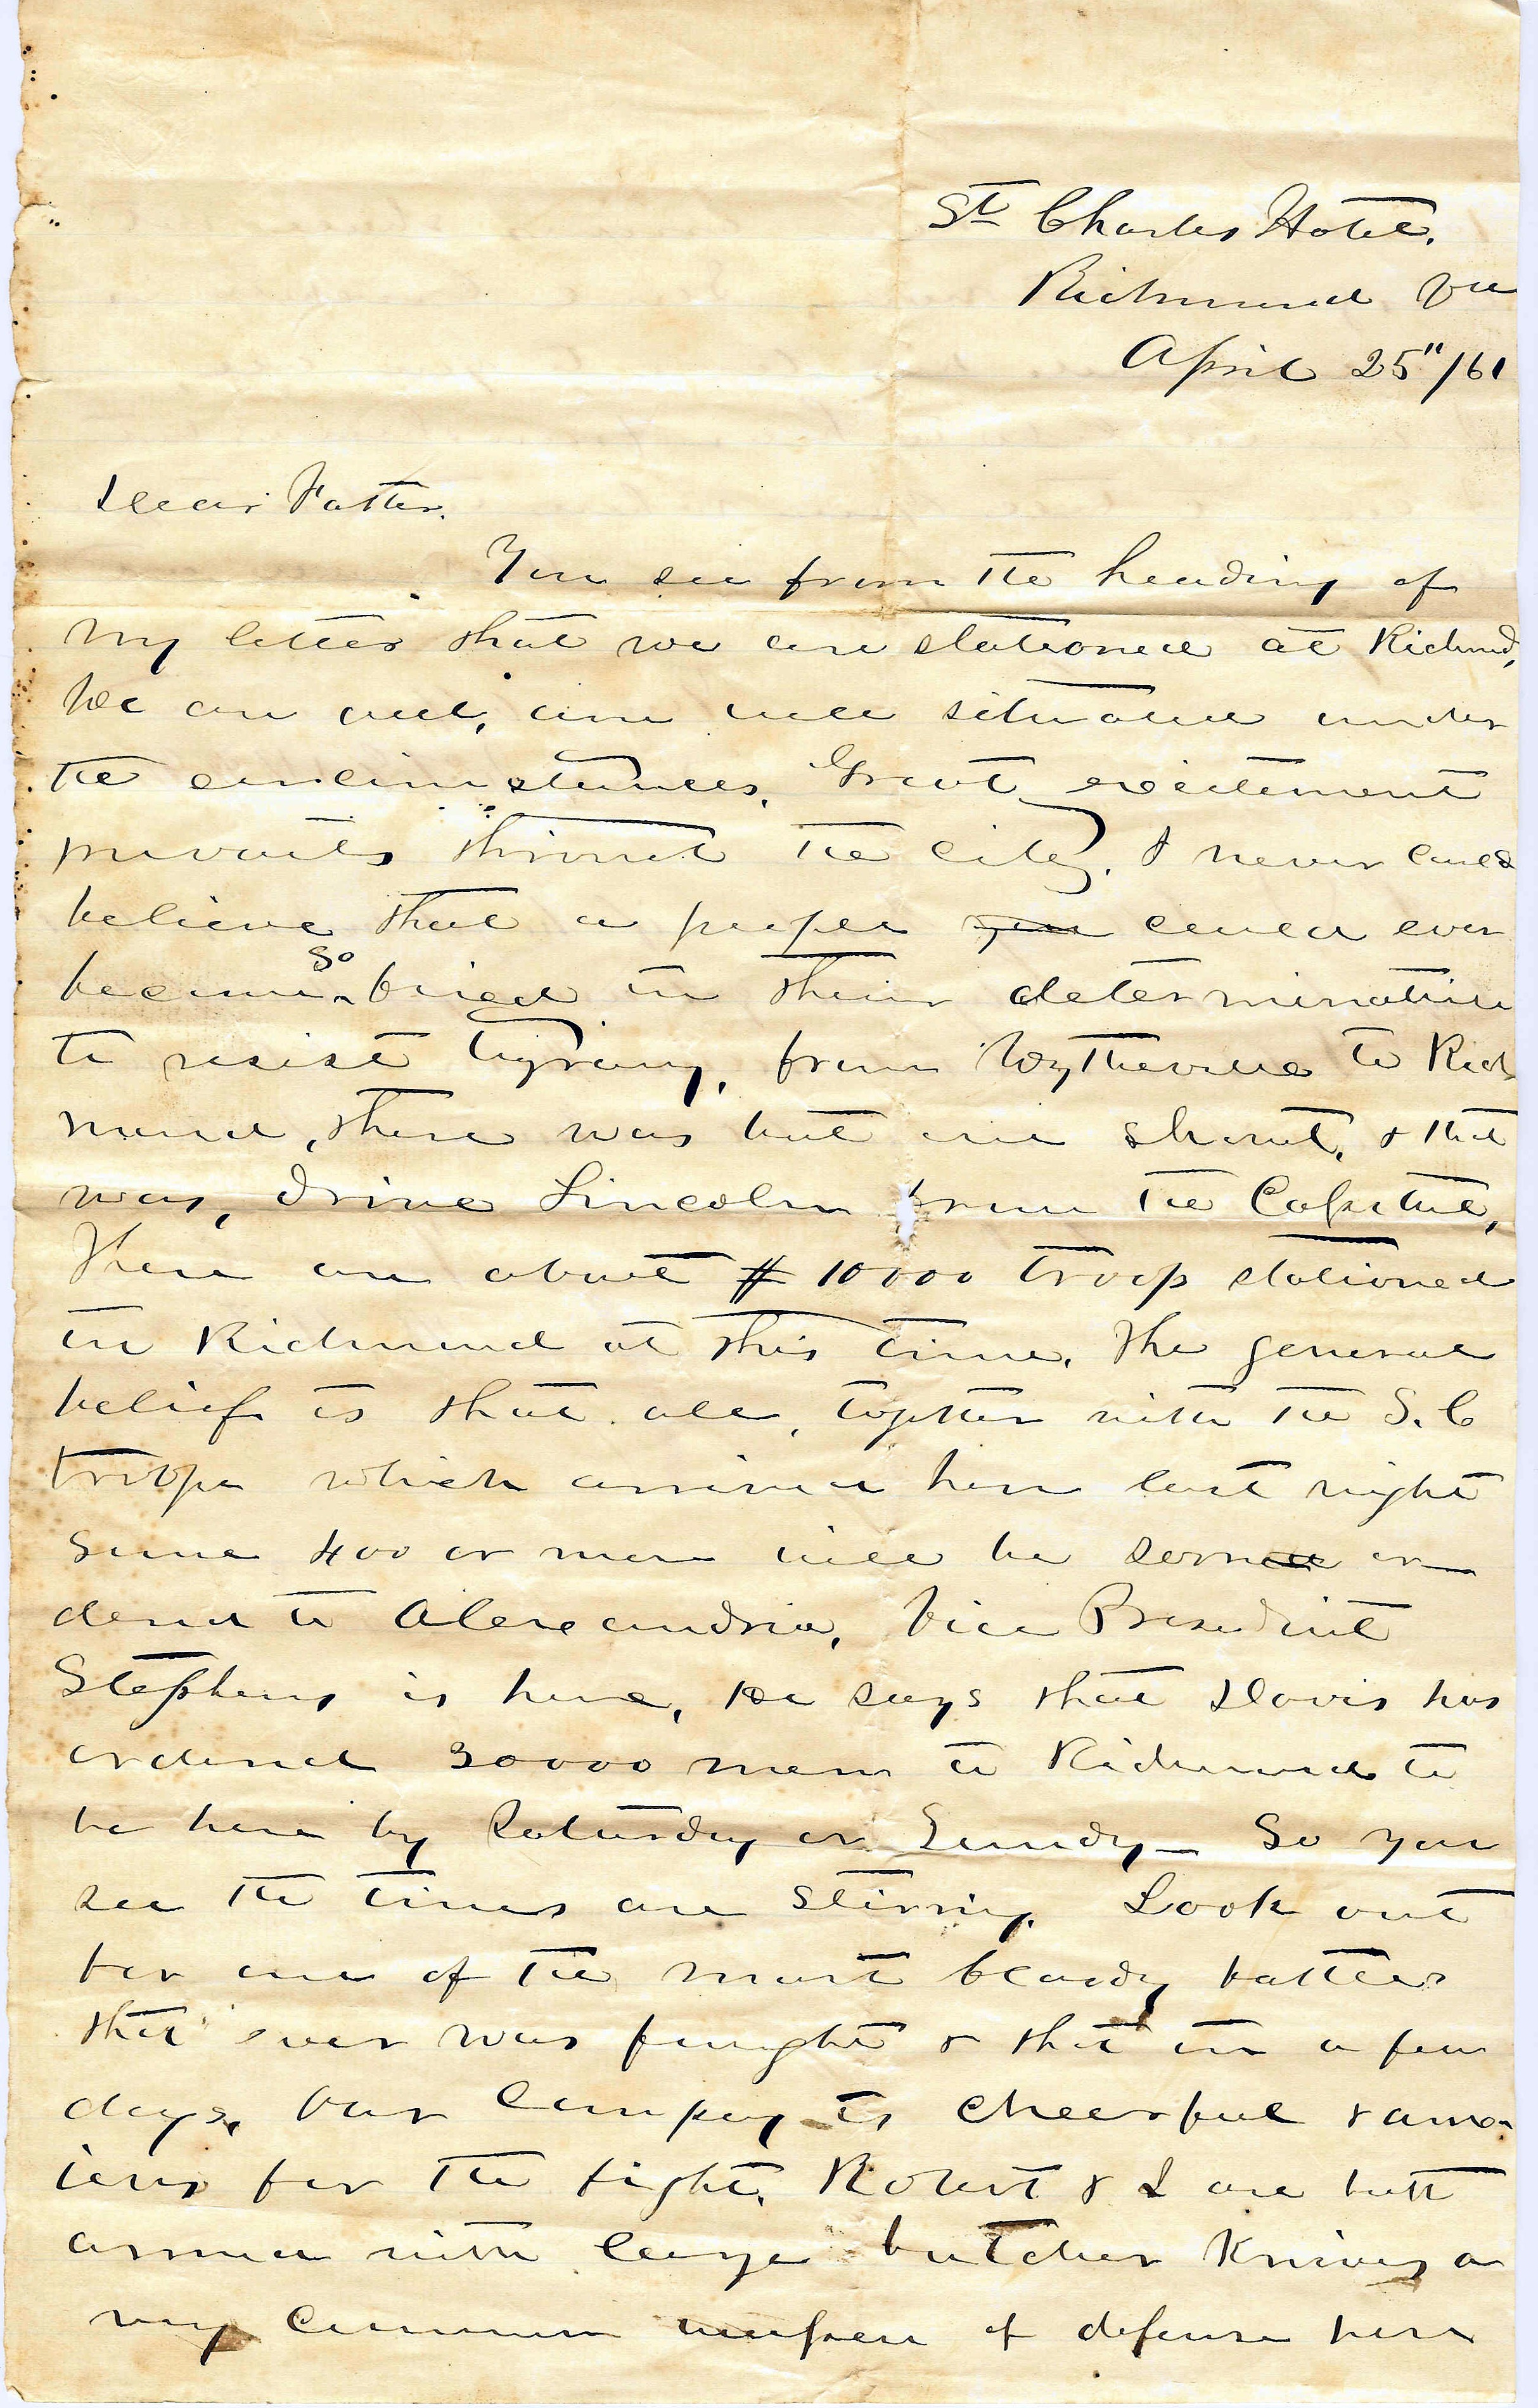 St Charles Hotel.
Richmond Va
April 25"/61
Dear Father.
You see from the heading of
my letter that we are stationed at Richmd,
We are all, are well situated under
the circumstances. Great excitement
prevails throut the city. I never could
believe that a people could ever
become so fixed in their determination
to resist tyrany, from Wytheville to Rich
mond, there was but one shout, & that
was, drive Lincoln from the Capitul,
There are about 10000 troops stationed
in Richmond at this time. The general
belief is that all, togther with the S. C
troops which arrived here last night
some 400 or more will be or
dered to Alexandria. Vice President
Stephens is here, He says that Davis has
ordered 30000 men to Richmond to
be here by Saturday or Sundy_ So you
see the times are stirring. Look out
for one of the most bloody battles
that ever was fought & that in a few
days, Our Company is cheerful & anx
ious for the fight. Robert & I are both
armed with large butcher Knives a
very common weapon of defense here